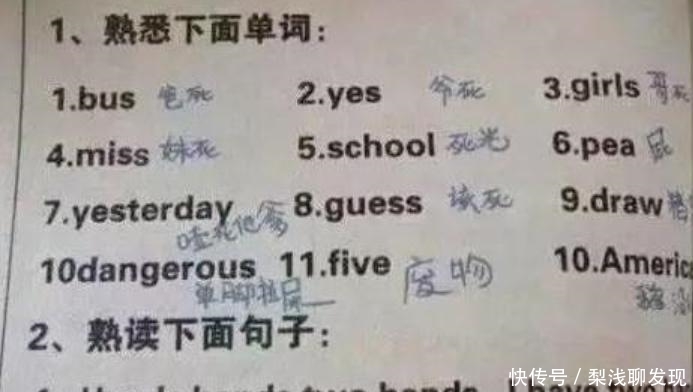 1、熟悉下面单词：
1.bus 包死 2.yes 爷死 3.girls 哥死
4.miss 妹死 5.school 死光 6.pea 屁
7.yesterday 8.guess 该死 9.draw
噎死他爹
10dangerous 11.five 废物 10.Americ
单脚拉屎
2、熟读下面句子：
快传号／梨浅聊发现